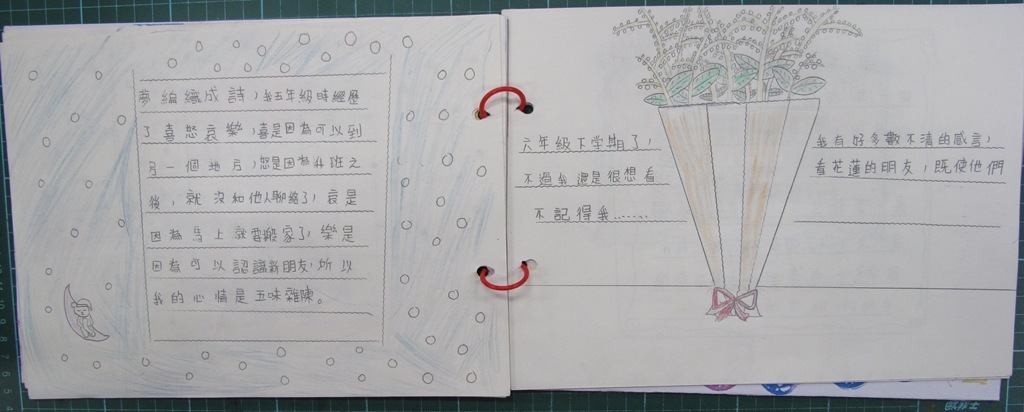 夢編織成詩，我五年級時經歷
了喜怒哀樂，喜是因為可以到
另一個地方，怒是因為升班之
後，就沒和他人聊絡了，哀是
因為馬上就要搬家了，樂是
因為可以認識新朋友，所以
我的心情是五味雜陳。
六年級下學期了，我有好多數不清的感言，
不過我還是很想看看花蓮的朋友，既使他們
不記得我……